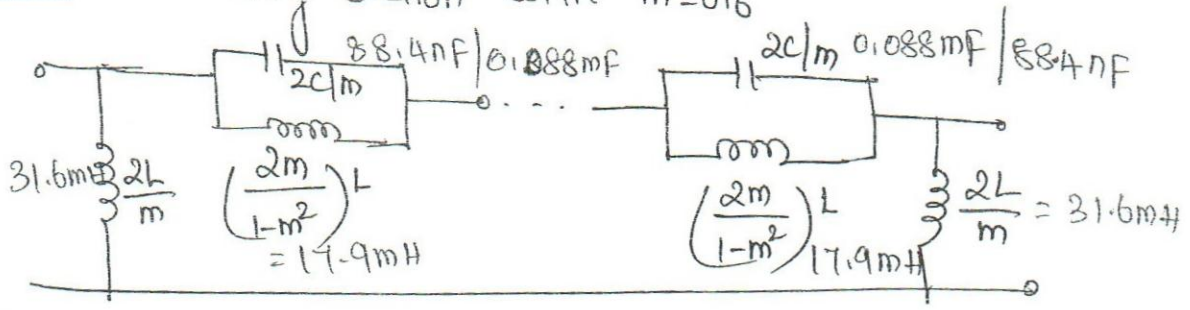 m=0.6
88.4nF/0.088mF
2C/m
2C/m 0.088mF/88.4nF
31.6mH 2L/m
(2m/1-m²)L
= 17.9mH
(2m/1-m²)L
17.9mH
2L/m = 31.6mH